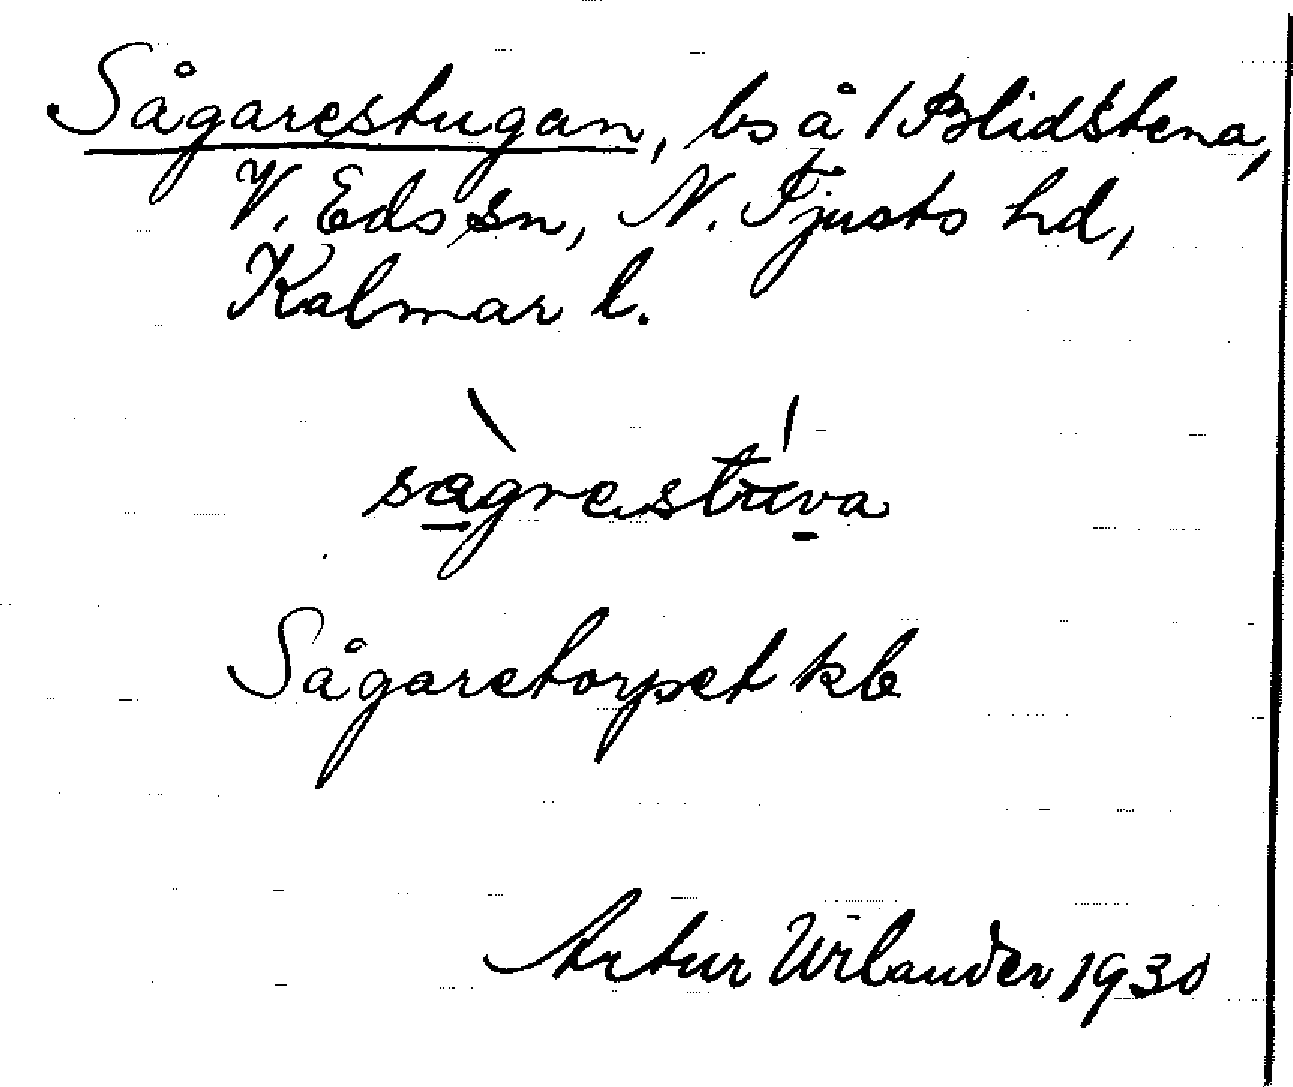 Sågarestugan, bs å 1 Blidstena,
V. Eds sn, N. Tjusts hd,
Kalmar l.
sagrestuva
Sågaretorpet kb
Artur Wilander 1930